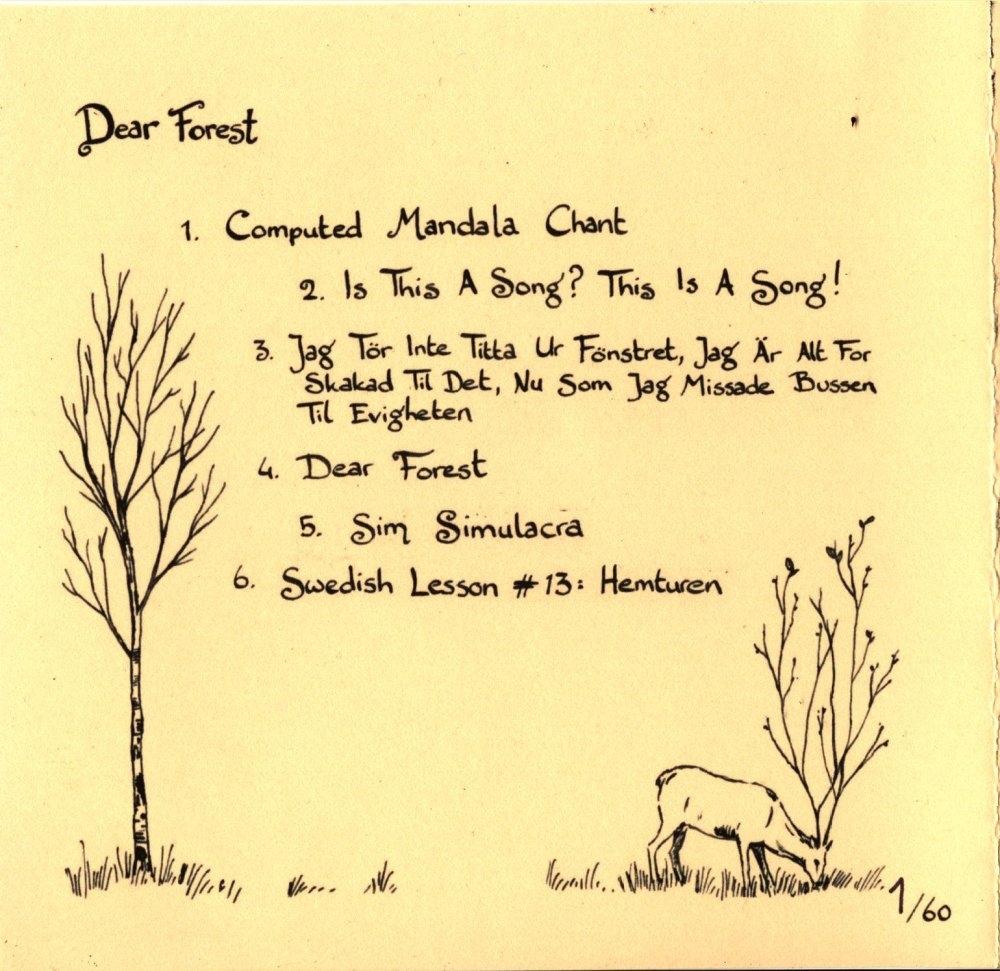 Dear Forest
1. Computed Mandala Chant
2. Is This A Song? This Is A Song!
3. Jag Tör Inte Titta Ur Fönstret, Jag Är Alt For
Skakad Til Det, Nu Som Jag Missade Bussen
Til Evigheten
4. Dear Forest
5. Sim Simulacra
6. Swedish Lesson #13: Hemturen
1/60